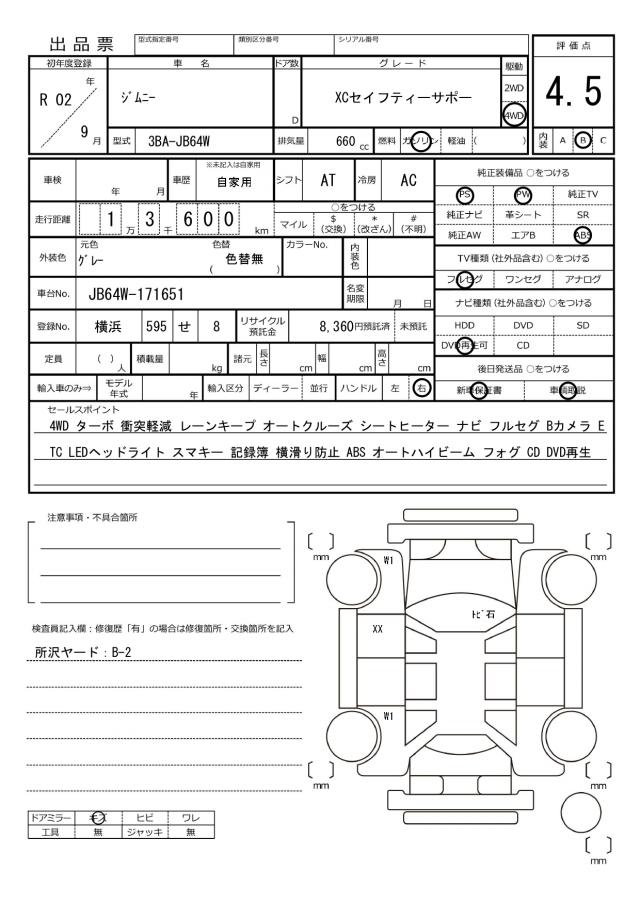 出品票
型式指定番号 類別区分番号 シリアル番号
初年度登録 車名 ドア数 グレード 駆動 評価点
R 02 年 9 月
ジムニー D XCセイフティーサポー 2WD 4WD 4.5
型式 3BA-JB64W 排気量 660 cc 燃料 ガソリン 軽油 ( ) 内装 A B C
車検 年 月 車歴 ※未記入は自家用 自家用 シフト AT 冷房 AC 純正装備品 ○をつける
PS PW 純正TV
走行距離 1 万 3 千 6 0 0 km ○をつける マイル $ (交換) * (改ざん) # (不明) 純正ナビ 革シート SR
純正AW エアB ABS
外装色 元色 グレー 色替 ( 色替無 ) カラーNo. 内装色 TV種類 (社外品含む) ○をつける
フルセグ ワンセグ アナログ
車台No. JB64W-171651 名変期限 月 日 ナビ種類 (社外品含む) ○をつける
登録No. 横浜 595 せ 8 リサイクル預託金 8,360円預託済 未預託 HDD DVD SD
DVD再生可 CD
定員 ( ) 人 積載量 kg 諸元 長さ cm 幅 cm 高さ cm 後日発送品 ○をつける
輸入車のみ⇒ モデル年式 年 輸入区分 ディーラー 並行 ハンドル 左 右 新車保証書 車輌取説
セールスポイント
4WD ターボ 衝突軽減 レーンキープ オートクルーズ シートヒーター ナビ フルセグ Bカメラ E
TC LEDヘッドライト スマキー 記録簿 横滑り防止 ABS オートハイビーム フォグ CD DVD再生
注意事項・不具合箇所
〔 〕 mm
〔 〕 mm
W1
トビ石
検査員記入欄:修復歴「有」の場合は修復箇所・交換箇所を記入
XX
所沢ヤード:B-2
W1
〔 〕 mm
〔 〕 mm
ドアミラー キズ ヒビ ワレ
工具 無 ジャッキ 無
〔 〕 mm